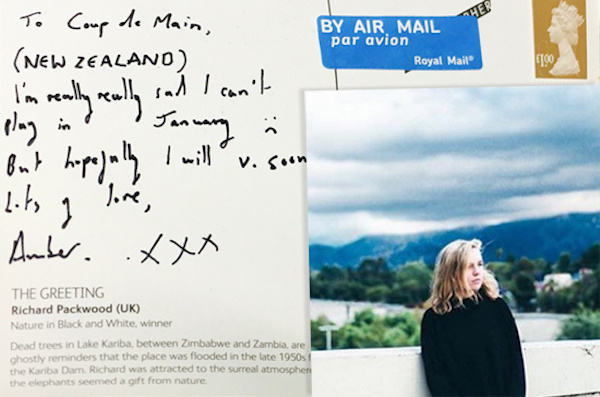 To Coup de Main,
(NEW ZEALAND)
I'm really really sad I can't
play in January :(
But hopefully I will v. soon
Lots of love,
Amber. . XXX
BY AIR MAIL
par avion
Royal Mail®
HER
£1.00
THE GREETING
Richard Packwood (UK)
Nature in Black and White, winner
Dead trees in Lake Kariba, between Zimbabwe and Zambia, are
ghostly reminders that the place was flooded in the late 1950s
the Kariba Dam. Richard was attracted to the surreal atmosphere
the elephants seemed a gift from nature.